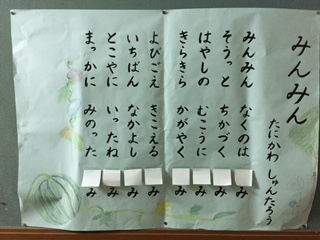 みんみん
たにかわ しゅんたろう
みんみん なくのは み
そうっと ちかづく み
はやしの むこうに み
きらきら かがやく み
よびごえ きこえる み
いちばん なかよし み
とこやに いったね み
まっかに みのった み